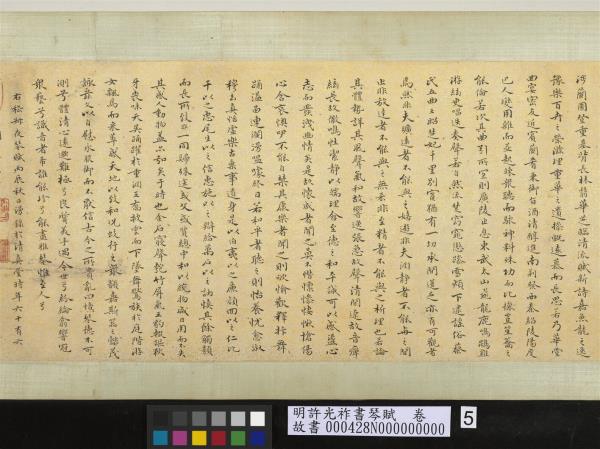 涉蘭圃登重基背長林翳華芝臨清流賦新詩嘉魚龍之逸
豫樂百卉之榮滋理重華之遺操慨遠慕而長思若乃華堂
曲宴密友近賓蘭肴兼御旨酒清醇進南荊發西秦紹陵陽度
巴人變用雜而並起竦眾聽而駭神料殊功而比操豈笙籥之
能倫若次其曲引所宜則廣陵止息東武太山飛龍鹿鳴鵾雞
遊絃更唱迭奏聲若自然流楚窈窕懲躁雪煩下逮謠俗蔡
氏五曲王昭楚妃千里別鶴猶有一切承間簉乏亦有可觀者
焉然非夫曠遠者不能與之嬉遊非夫淵靜者不能與之閒
止非放達者不能與之無吝非至精者不能與之析理也若論
其體勢詳其風聲器和故響逸張急故聲清間遼故音庳
絃長故徽鳴性潔靜以端理含至德之和平誠可以感盪心
志而發洩幽情矣是故懷戚者聞之莫不憯懍慘悽愀愴傷
心含哀懊咿不能自禁其康樂者聞之則欨愉歡釋抃舞
踊溢留連瀾漫嗢噱終日若和平者聽之則怡養悅愉淑
穆玄真恬虛樂古棄事遺身是以伯夷以之廉顏回以之仁比
干以之忠尾生以之信惠施以之辯給萬石以之訥慎其餘觸類
而長所致非一同歸殊途或文或質總中和以統物咸日用而不失
其感人動物蓋亦弘矣于時也金石寢聲匏竹屏氣王豹輟謳狄
牙喪味天吳踊躍於重淵王喬披雲而下墜舞鸑鷟於庭階游
女飄焉而來萃感天地以致和況蚑行之眾類嘉斯器之懿茂
詠茲文以自慰永服御而不厭信古今之所貴亂曰愔愔琴德不可
測兮體清心遠邈難極兮良質美手遇今世兮紛綸翕響冠
眾藝兮識音者希孰能珍兮能盡雅琴惟至人兮
右嵇叔夜琴賦丙辰秋日錄於清真堂時年六十有六
明許光祚書琴賦 卷
故書 000428N000000000
5